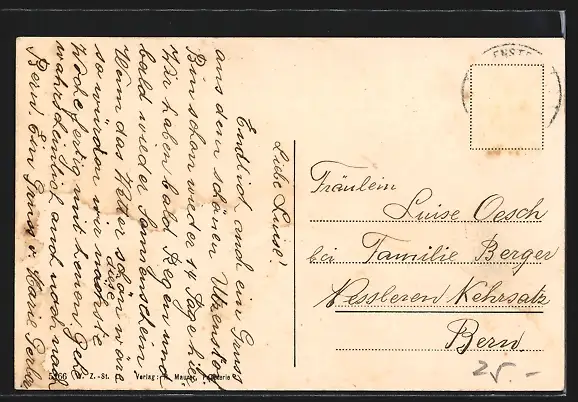 Liebe Luise!
Endlich auch ein Gruss
aus dem schönen Utzenstorf
Bin schon wieder 14 Tage hier
Wir haben bald Regen und
bald wieder Sonnenschein
Wenn das Wetter schön wäre
so würden wir nächste
Woche fertig mit Heuen Gehe
wahrscheinlich auch noch nach
Bern. Ein Gruss v. Marie Gerber
Fräulein
Luise Oesch
bei Familie Berger
Kehrsatz
Bern.
25.-
Verlag: